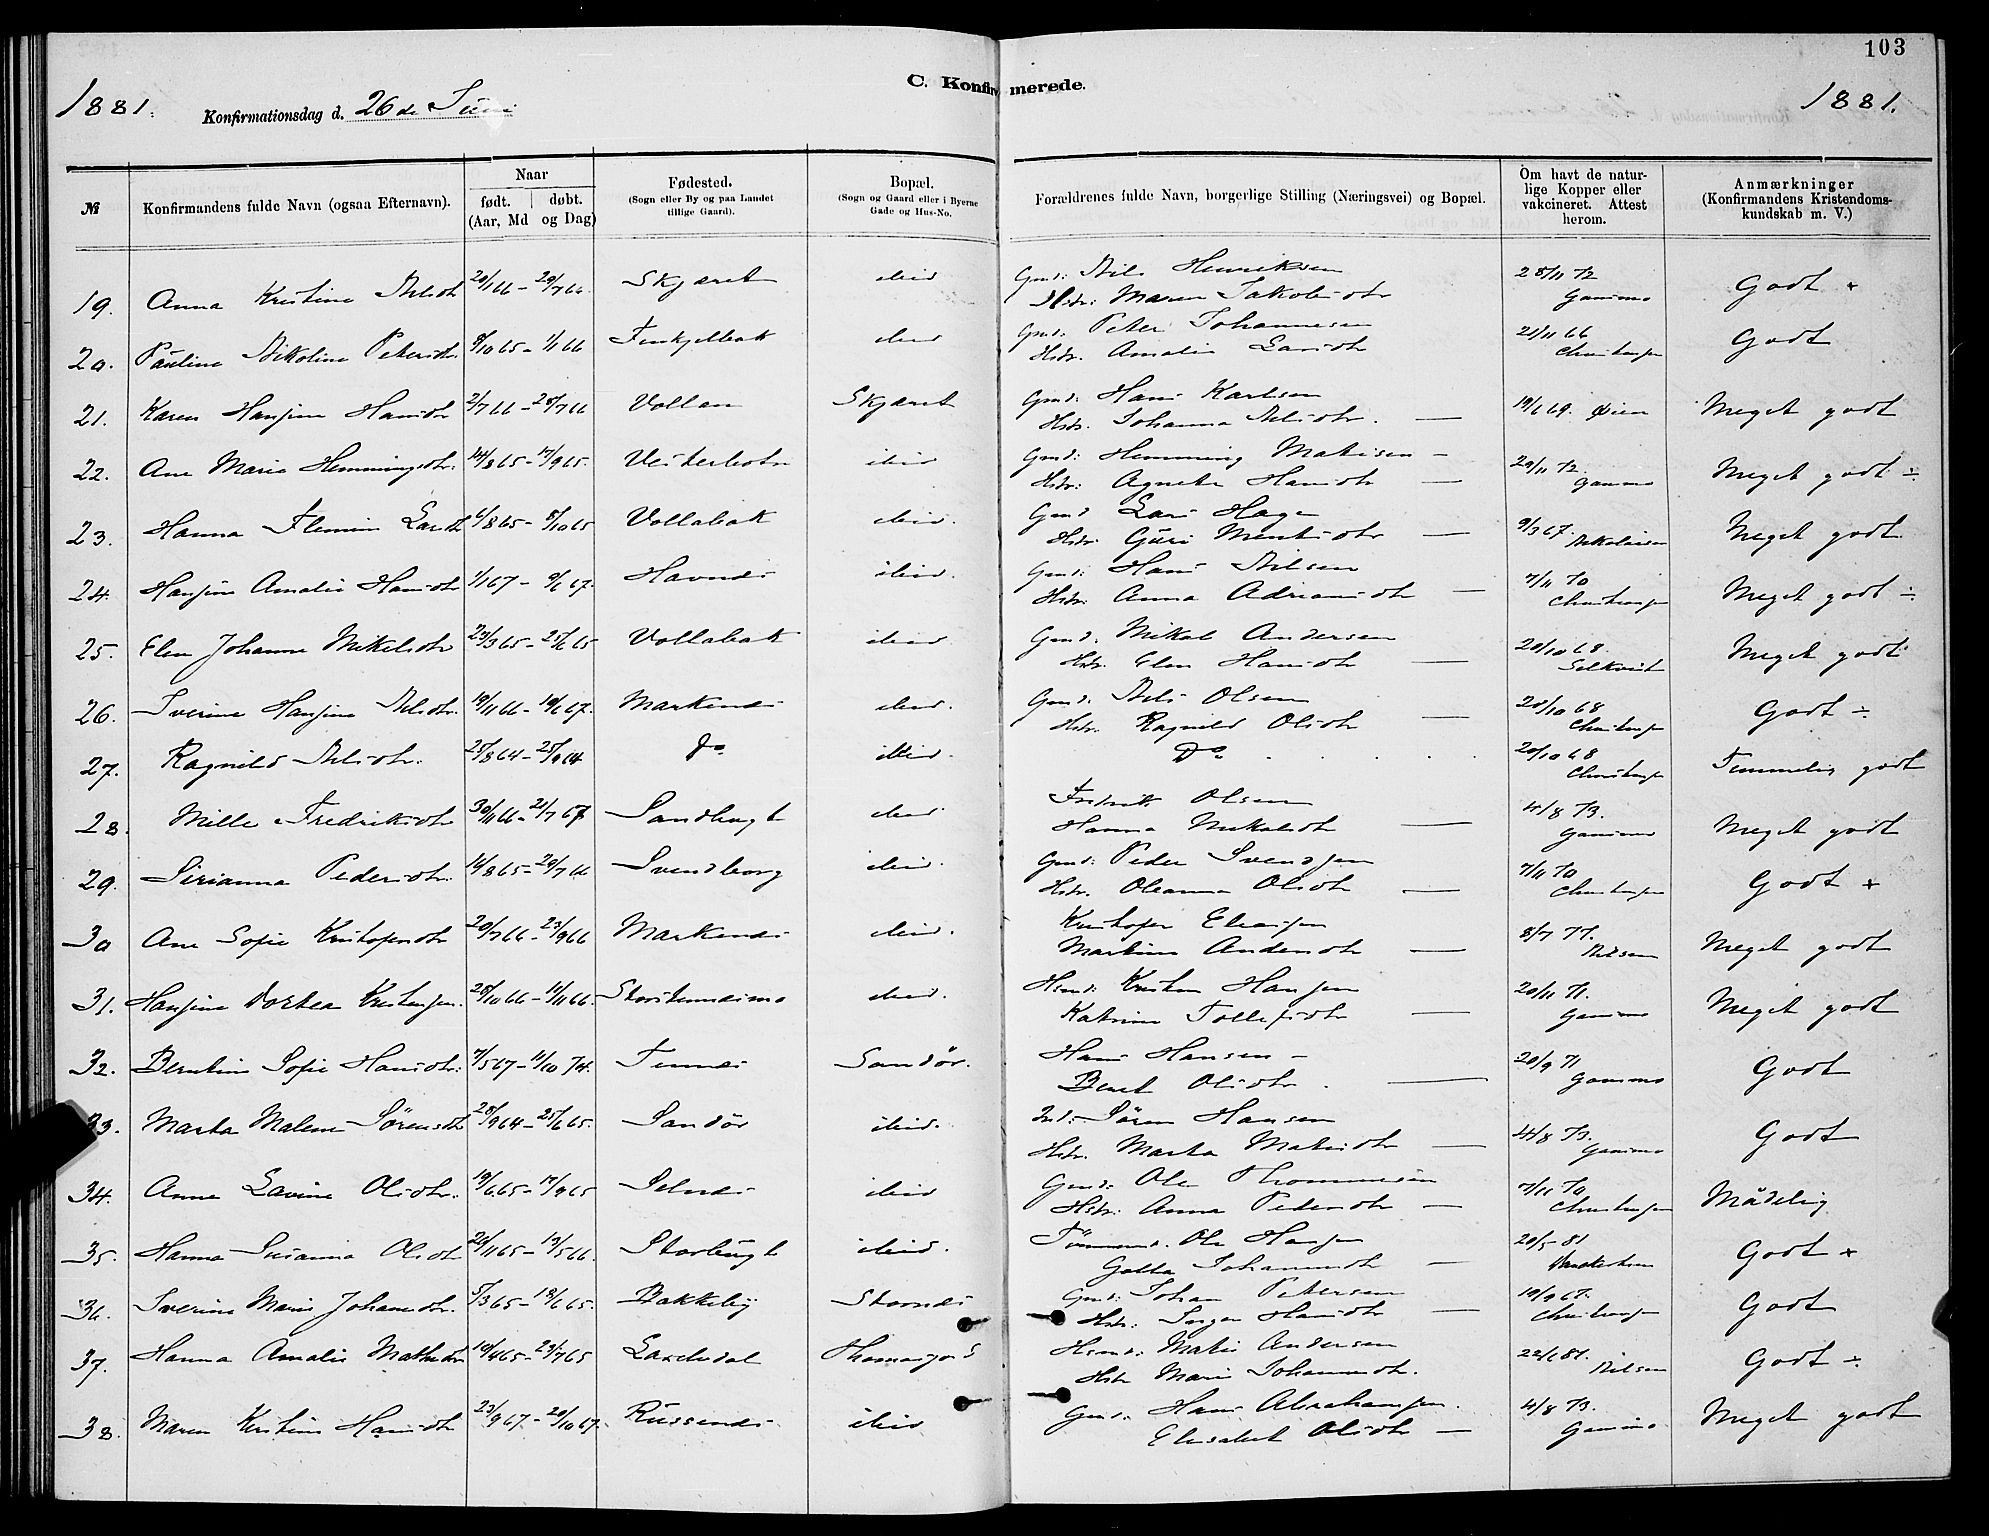 103
C. Konfirmerede.
1881. Konfirmationsdag d. 26de Juni 1881.
№ Konfirmandens fulde Navn (ogsaa Efternavn). Naar født. (Aar, Md døbt. og Dag) Fødested. (Sogn eller By og paa Landet tillige Gaard). Bopæl. (Sogn og Gaard eller i Byerne Gade og Hus-No. Forældrenes fulde Navn, borgerlige Stilling (Næringsvei) og Bopæl. Om havt de naturlige Kopper eller vakcineret. Attest herom. Anmærkninger (Konfirmandens Kristendomskundskab m. V.)
19. Anna Kristine Nilsdtr 29/7 66. Skjæret ibid Gmd: Nils Henriksen 28/11 72 Godt +
Hstr: Maren Jakobsdtr
20. Pauline Nikoline Petersdtr. 8/10 65 - 1/1 66 ibid Gmd: Peter Johannesen 21/11 66 Godt
Hstr. Amalie Larsdtr Christensen
21. Karen Hansine Hansdtr 2/7 66 - 29/7 66 Vollan Skjæret Gmd: Hans Karlsen 19/6 69. Øien Meget godt
Hstr. Johanna Nilsdtr. —
22. Ane Marie Hemmingsdtr. 14/8 65 - 17/9 65. ibid Gmd: Hemming Matisen — 29/11 72. Meget godt ÷
Hstr: Agnete Hansdtr —
23. Hanna Larsdtr 6/8 65 - 8/10 65 Vollabak ibid. Gmd Lars Hage 9/3 67. Nikolaisen Meget godt
Hstr. Guri —
24. Hansine Amalie Hansdtr 1/1 67 - 9/6 67. Havnes ibid. Gmd: Hans Nilsen 7/11 70 Meget godt ÷
Hstr. Anna Adriansdtr — Christensen
25. Elen Johanne Mikelsdtr 23/3 65 - 25/6 65 Vollabak ibid Gmd. Mikal Andersen 20/10 68. Meget godt
Hstr. Elen Hansdtr —
26. Sverine Hansine Nilsdtr. 19/11 66 - 10/6 67. Markenes ibid. Gmd: Nils Olsen 20/10 68 Godt ÷
Hstr. Ragnild Olsdtr — Christensen
27. Ragnild Nilsdtr. 25/8 64 - 25/9 64 Do. ibid. Do. 20/10 68 Temmelig godt
Christensen
28. Mille Fredriksdtr 30/11 66 - 21/7 67 Sandbugt ibid Fredrik Olsen 4/8 73. Meget godt
Hanna Mikalsdtr —
29. Sirianna Pedersdtr. 16/8 65 - 29/7 66 Svendborg ibid. Gmd: Peder Svendsen 7/11 70 Godt +
Hstr. Oleanna Olsdtr — Christensen
30 Ane Sofie Kristofersdtr 20/7 66 - 23/9 66 Markenes ibid. Kristofer 8/7 77. Meget godt
Martine Andersdtr — Nilsen
31. Hansine Dortea 28/10 66 - 11/11 66. ibid. Hsmd: Kristen Hansen 20/11 71. Meget godt
Katrine Tollefsdtr —
32. Berntine Sofie Hansdtr. 7/5 67 - 11/10 74. Tennes Sandør. Hans Hansen — 20/9 71 Godt
Berit Olsdtr. —
33. Marta Malene Sørensdtr 28/9 64 - 25/6 65. Sandør ibid. Søren Hansen 4/8 73. Godt
Hstr. Marta Matisdtr —
34. Anne Lavine Olsdtr. 19/6 65 - 17/9 65 Selnes ibid Gmd: Ole Thommesen 7/11 70 Mådelig
Hstr. Anna Pedersdtr — Christensen
35. Hanna Susanna Olsdtr 26/11 65 - 13/5 66. Storbugt ibid. Ole Hansen 20/5 - 81 Godt +
Johannesdtr —
36. Sverine Marie Johansdtr. 5/3 65 - 18/6 65. Bakkeby Stornes Gmd: Johan Petersen 19/9 67. Godt
Hstr: Inger Hansdtr — Christensen
37. Hanna Amalie Mathisdtr 10/4 65 - 23/7 65 Hsmd: Matis Andersen 22/6 81. Nilsen Godt ÷
Hstr Marie Johannesdtr.
38. Maren Kristine Hansdtr 23/9 67 - 20/10 67. Russenes ibid Gmd: Hans Abrahamsen. 4/8 73. Meget godt
Elisabet Olsdtr —